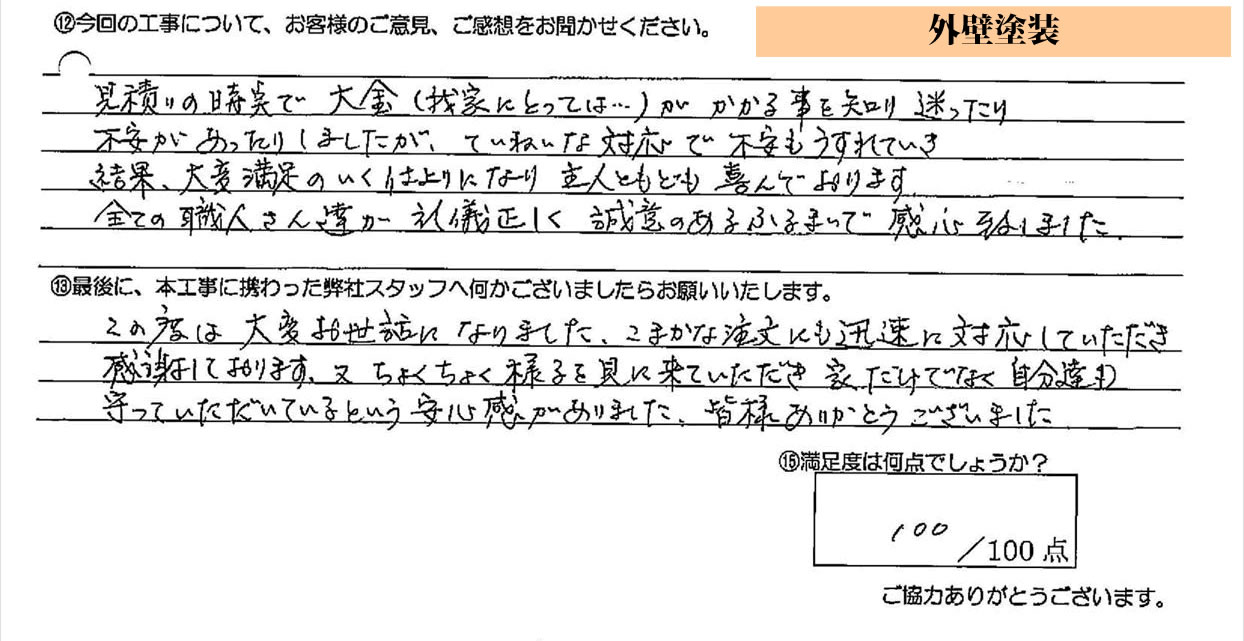 ⑫今回の工事について、お客様のご意見、ご感想をお聞かせください。
外壁塗装
見積りの時点で 大金(我家にとっては…)が かかる事を知り 迷ったり
不安があったりしましたが、ていねいな対応で 不安もうすれていき
結果、大変満足のいく仕上りになり 主人ともども 喜んでおります
全ての職人さん達が 礼儀正しく 誠意のあるふるまいで 感心致しました。
⑬最後に、本工事に携わった弊社スタッフへ何かございましたらお願いいたします。
この度は 大変お世話になりました、こまかな注文にも迅速に対応していただき
感謝しております、又 ちょくちょく様子を見に来ていただき 家だけでなく自分達も
守っていただいているという安心感がありました、皆様ありがとうございました
⑮満足度は何点でしょうか?
100/100点
ご協力ありがとうございます。